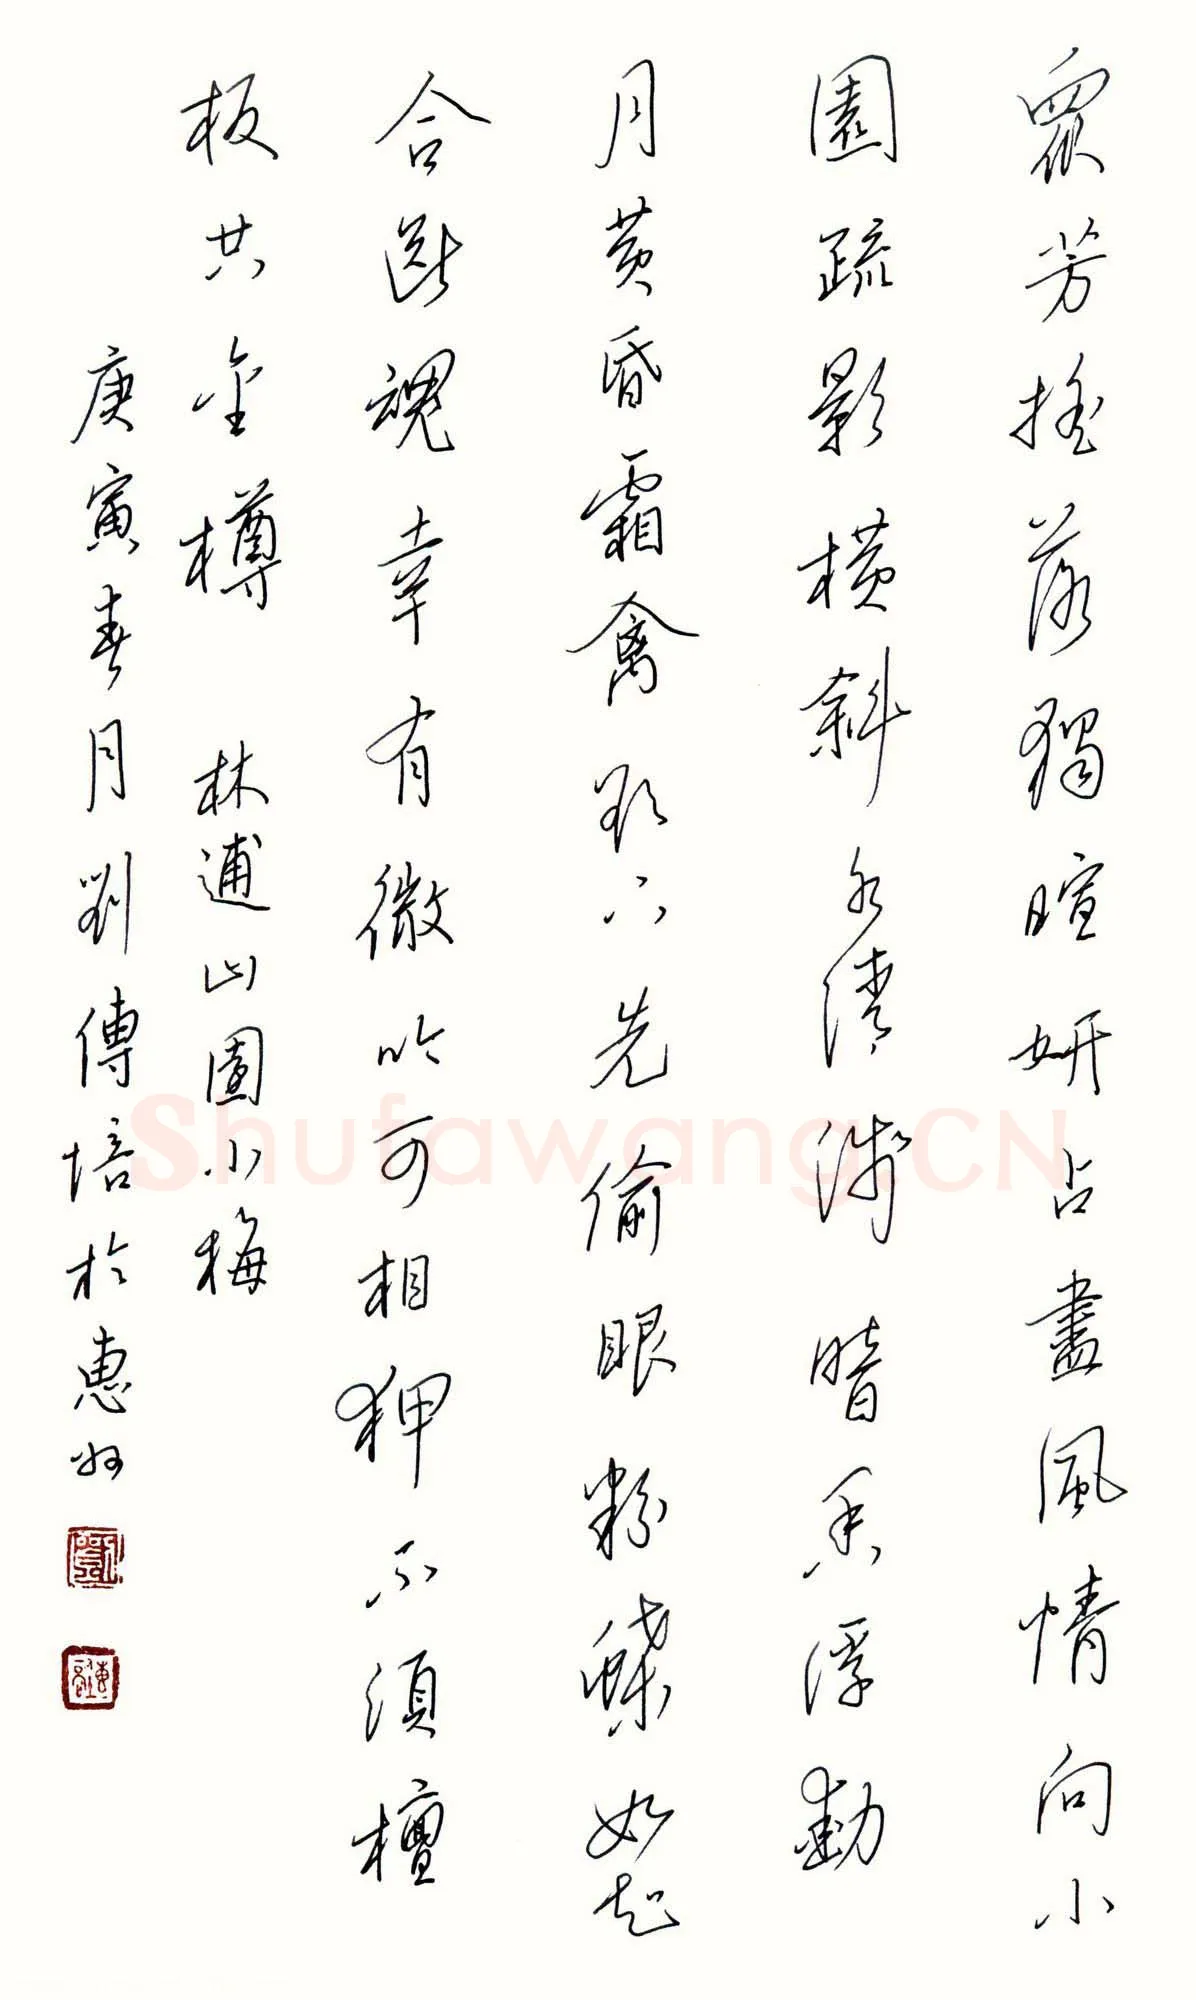 眾芳搖落獨暄妍占盡風情向小
園疏影橫斜水清淺暗香浮動
月黃昏霜禽欲下先偷眼粉蝶如知
合斷魂幸有微吟可相狎不須檀
板共金樽 林逋山園小梅
庚寅春月劉傳培於惠州
Shufawang.CN